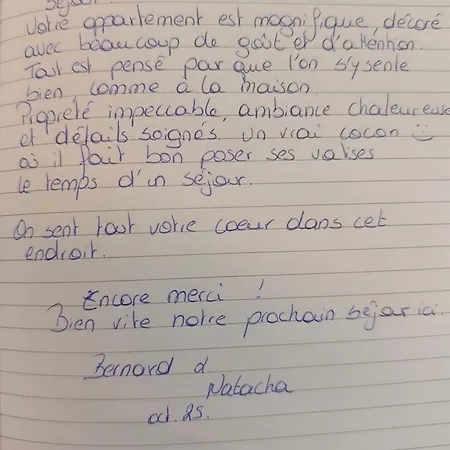 séjour.
Votre appartement est magnifique, décoré
avec beaucoup de goût et d'attention.
Tout est pensé par que l'on s'y sente
bien, comme à la maison.
Propreté impeccable, ambiance chaleureuse
et détails soignés, un vrai cocon
où il fait bon poser ses valises
le temps d'un séjour.
On sent tout votre coeur dans cet
endroit.
Encore merci !
Bien vite notre prochain séjour ici.
Bernard &
Natacha
oct. 25.